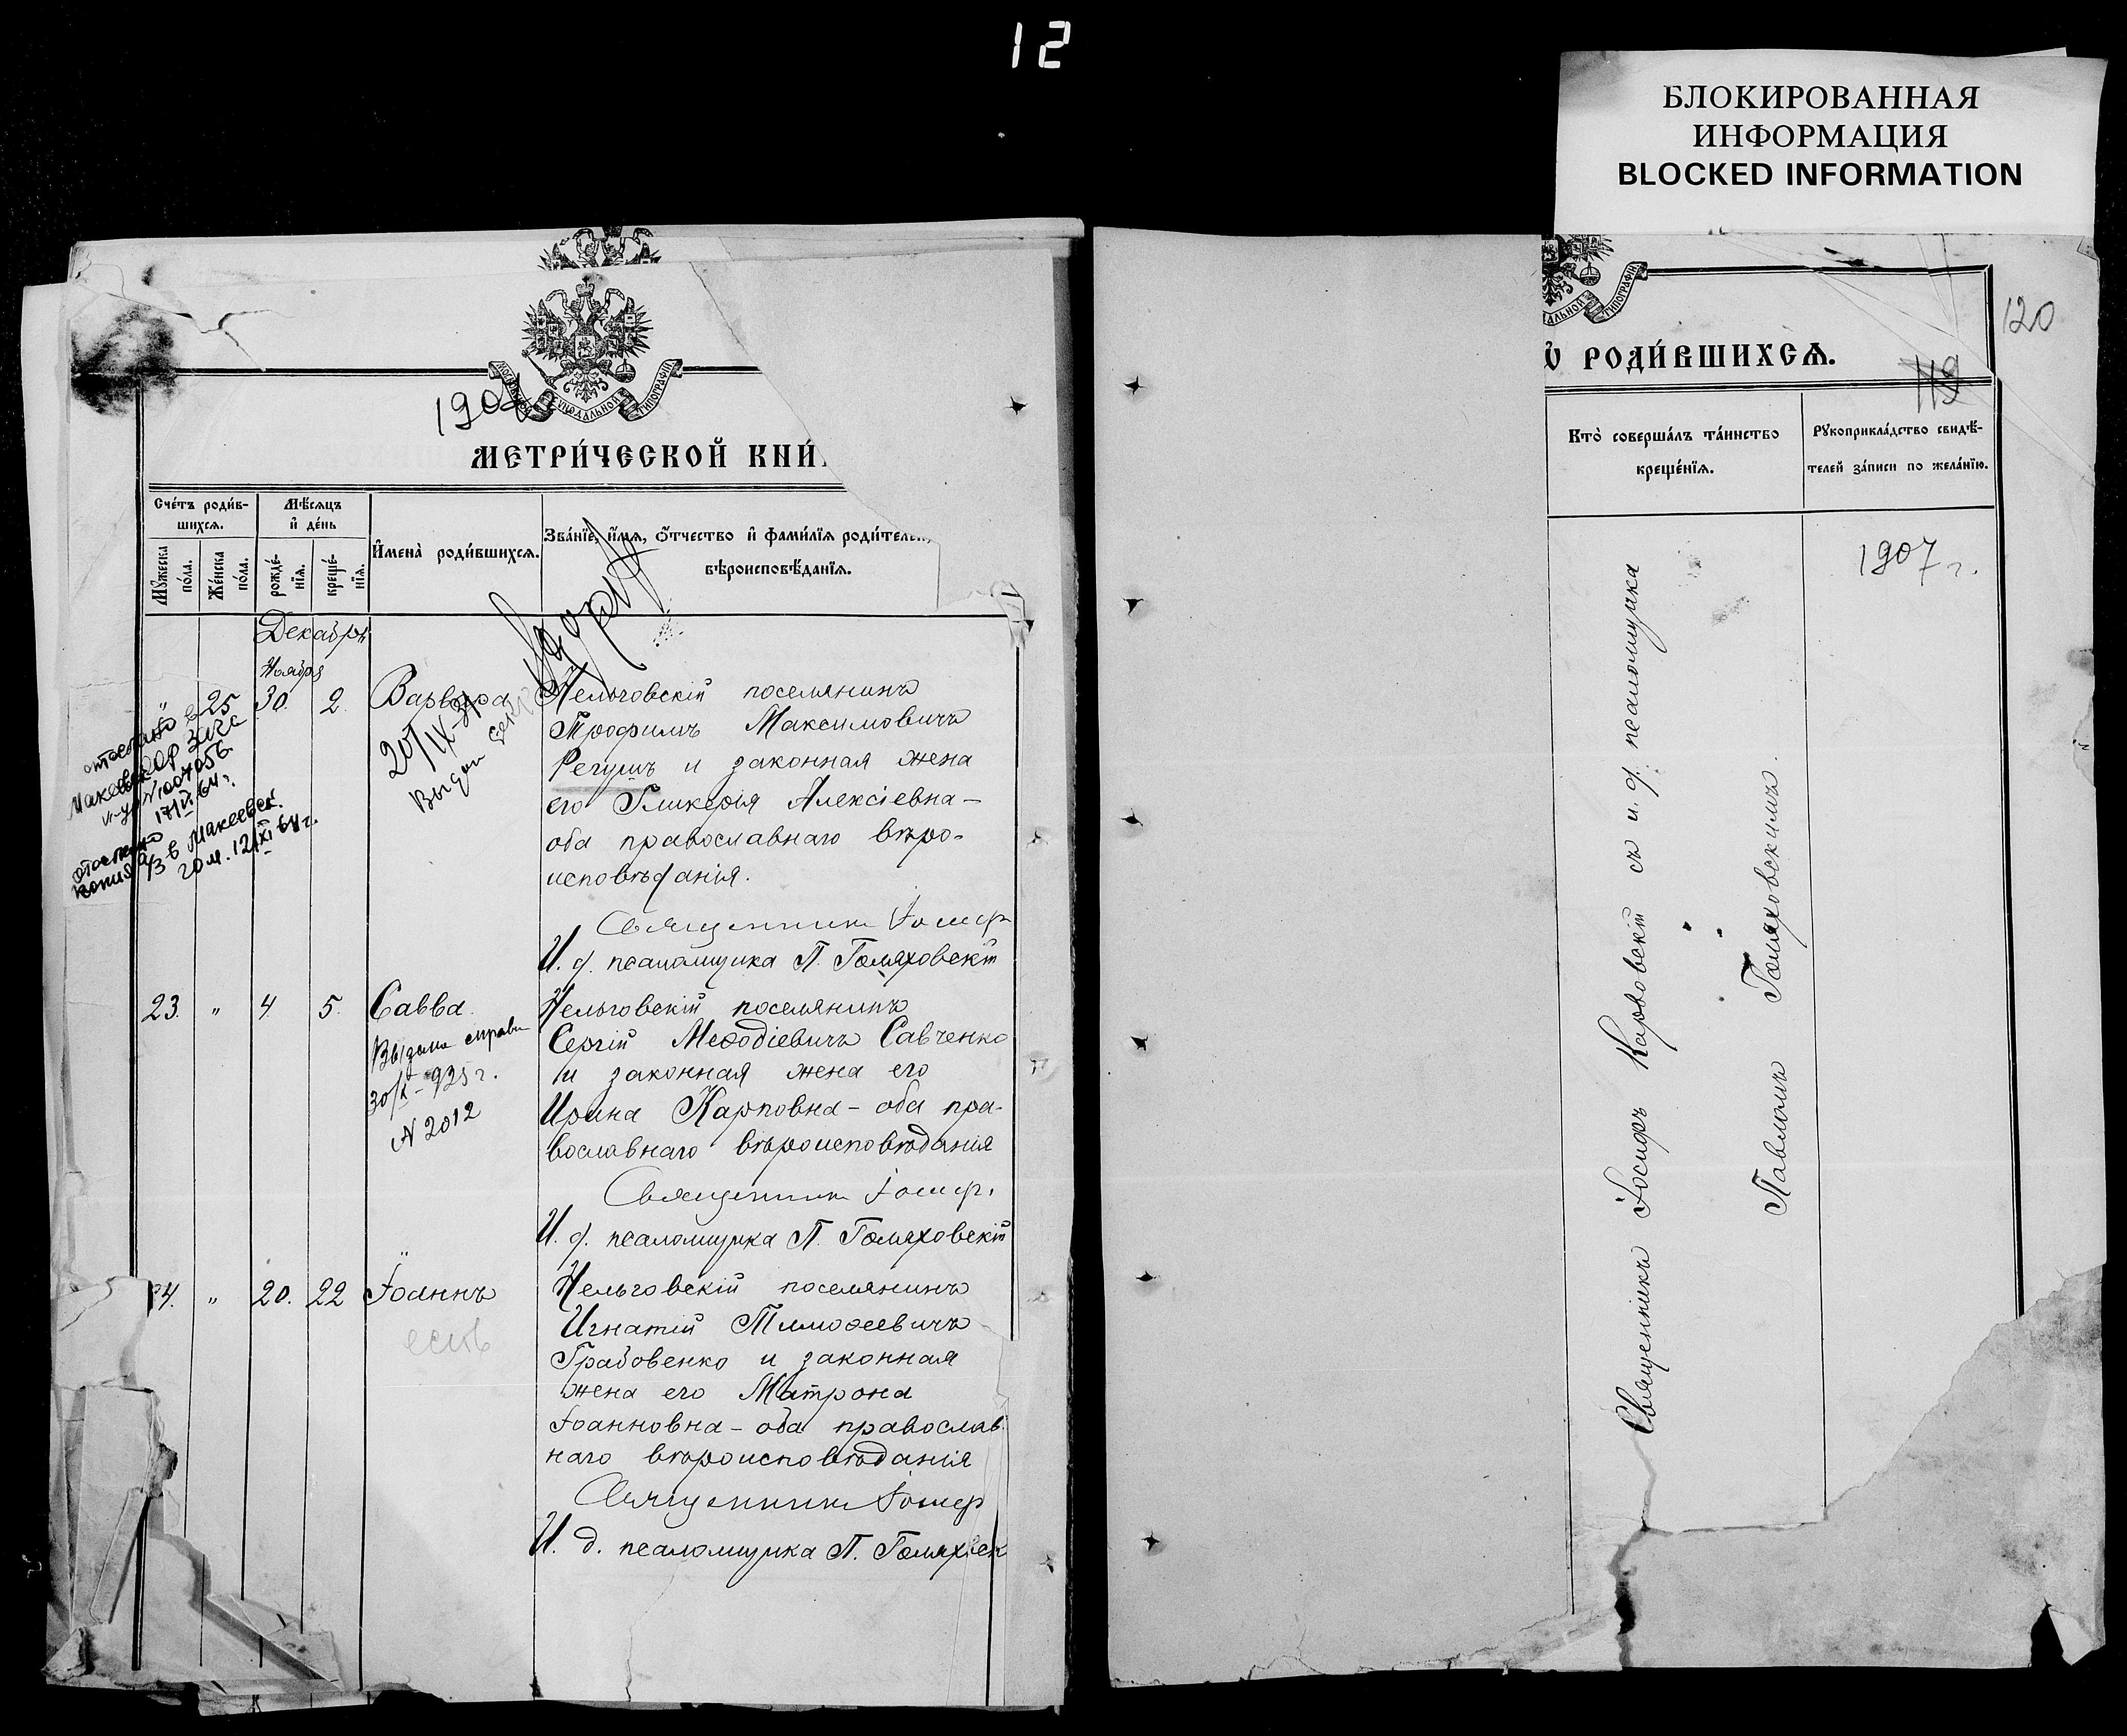 12
БЛОКИРОВАННАЯ
ИНФОРМАЦИЯ
BLOCKED INFORMATION
МОСКОВСКОЙ СѴНОДАЛЬНОЙ ТИПОГРАФІИ
МЕТРИ́ЧЕСКОЙ КНИ́
Сче́тъ роди́в-
шихсѧ.
Мꙋ́жеска
по́ла.
Же́нска
по́ла.
Мѣ́сѧцъ
и҆ де́нь
рожде́-
нїѧ.
креще́-
нїѧ.
И҆мена̀ роди́вшихсѧ.
Зва́нїе, и҆́мѧ, ѻ҆́тчество и҆ фами́лїѧ роди́телей,
вѣроисповѣ́данїѧ.
Декабрь
Ноября
25 30. 2. Варвара
20/IX-
Выдан
Нельговскій поселянинъ
Трофимъ Максимовичъ
Регушъ и законная жена
его Гликерія Алексіевна –
оба православнаго вѣро-
исповѣданія.
Священникъ Іосиф
И. д. псаломщика П. Голяховскій
17/VI 64 г.
копия в Макеевск.
гом. 12/XI 64 г.
23. " 4. 5. Савва.
Выдана справк
30/X - 935 г.
N 2012
Нельговскій поселянинъ
Сергій Меѳодіевичъ Савченко
и законная жена его
Ирина Карповна – оба пра-
вославнаго вѣроисповѣданія
Священникъ Іосиф.
И. д. псаломщика П. Голяховскій
24. " 20. 22 Іоаннъ
есть
Нельговскій поселянинъ
Игнатій Тимоѳеевичъ
Грабовенко и законная
жена его Матрона
Іоанновна – оба православ-
наго вѣроисповѣданія
Священникъ Іосиф
И. д. псаломщика П. Голяховск
АЛЬНОЙ ТИПОГРАФІИ
120
119
Ѡ РОДИ́ВШИХСѦ.
Кто̀ соверша́лъ та́инство
креще́нїѧ.
Рꙋкоприкла́дство свидѣ́-
телей за́писи по жела́нїю.
1907 г.
Священникъ Іосифъ Карповскій съ и. д. псаломщика
Павломъ Голяховскимъ.